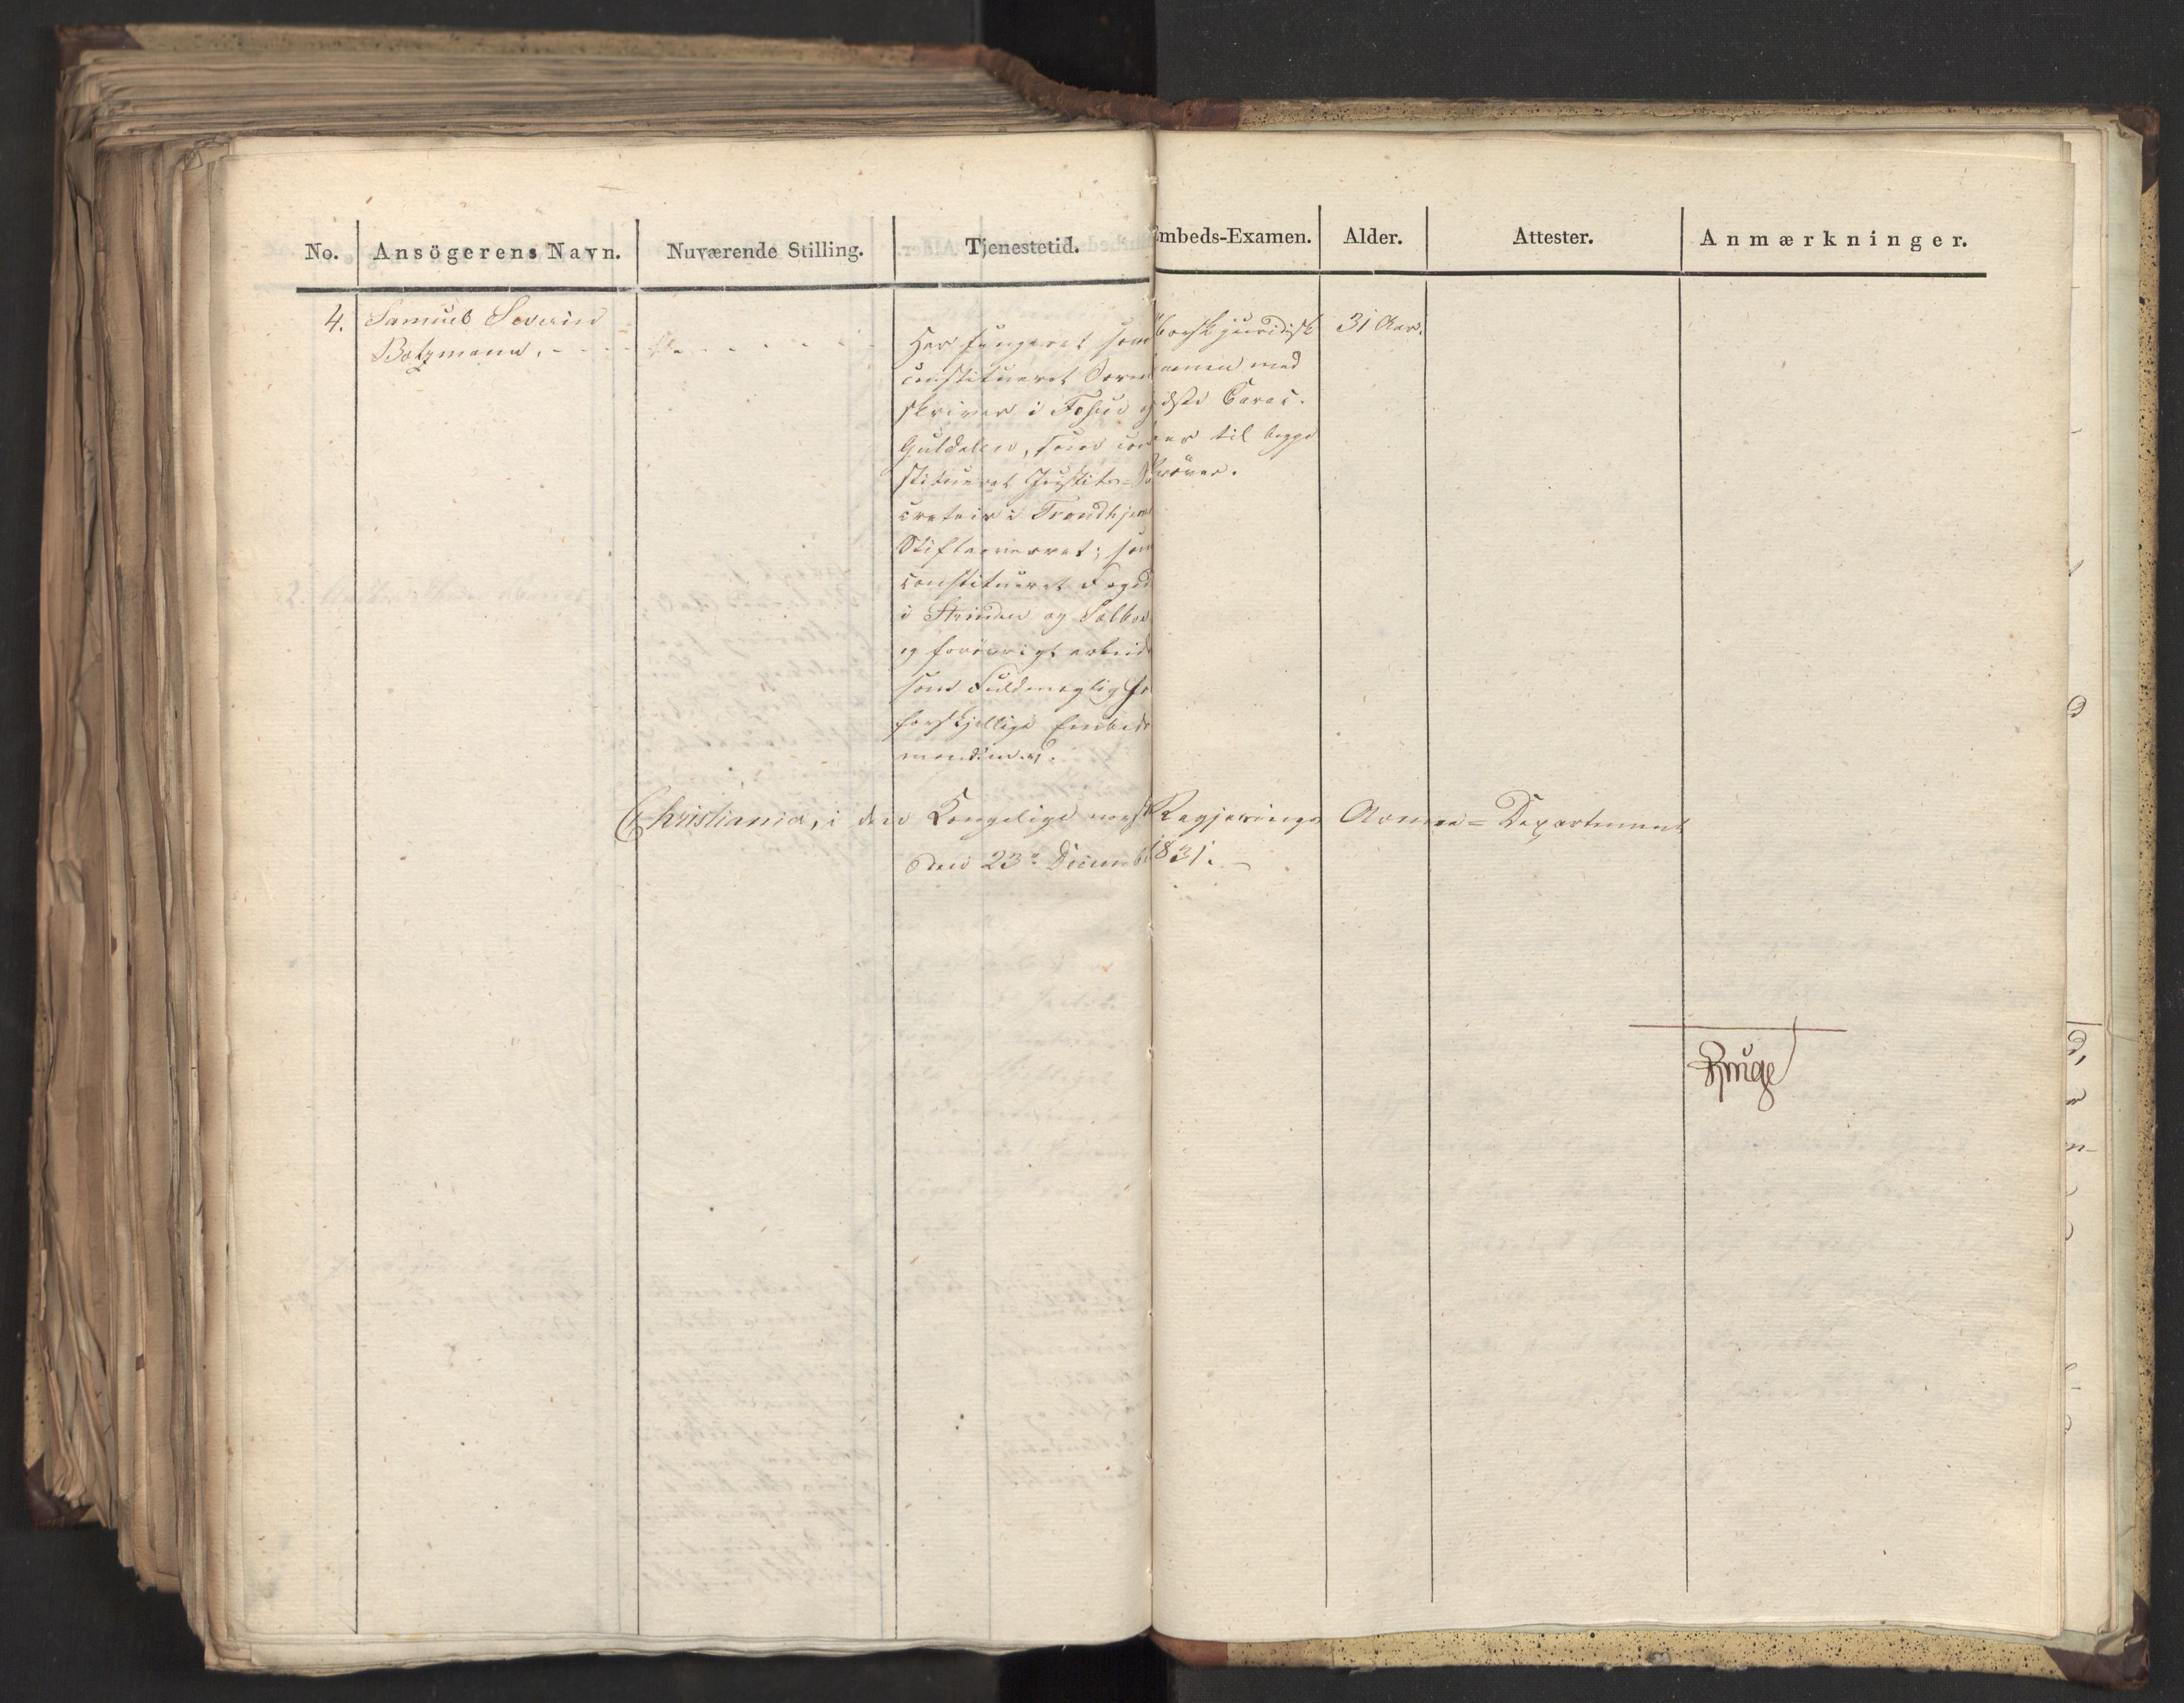 No. Ansögerens Navn. Nuværende Stilling. Tjenestetid. Embeds-Examen. Alder. Attester. Anmærkninger.
4. Samuel Severin
Botzmann. - - -
Har fungeret som
constitueret Soren-
skriver i Fosen og
Guldalen, som con-
stitueret Justits-Se-
cretair i Trondhjems
Stiftsoverret; som
constitueret Foged
i Strinden og Selboe
og forövrigt arbeidet
som Fuldmægtig hos
forskjellige Embeds-
mænd.
norsk juridisk
Examen med
Carac-
terer til begge
Pröver.
31 Aar.
Christiania, i den Kongelige norske Regjerings Armee-Departement
den 23de December 1831.